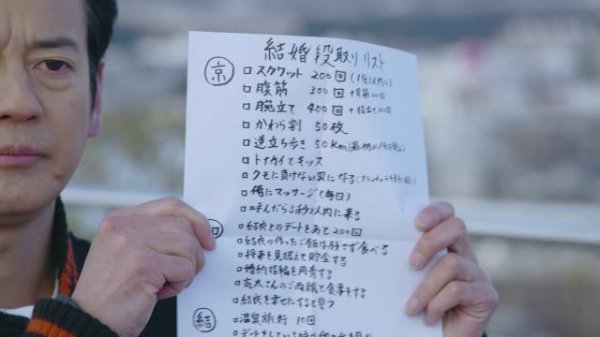 結婚段取りリスト
京
□スクワット 200回(1分以内)
□腹筋 300回
□腕立て 400回
□かわら割 50枚
□逆立ち歩き 50km
□トナカイとキッス
□クモに負けない男になる
□俺にマッサージ(毎日)
□呼んだら3秒以内に来る
□結衣とのデートをあと200回
□結衣の作ったご飯は残さず食べる
□将来を見据えて貯金する
□婚約指輪を用意する
□さんのご両親と食事をする
□結衣を幸せにすると誓う
結
□温泉旅行 10回